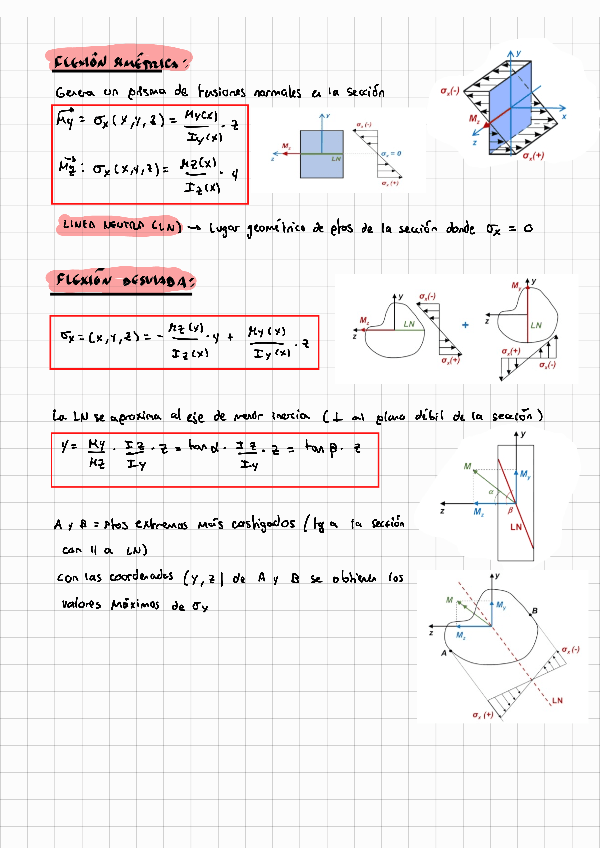 FLEXIÓN SIMÉTRICA:
Genera un prisma de tensiones normales en la sección
My = σx (x,y,z) = My(x) / Iy(x) · z
Mz : σx (x,y,z) = Mz(x) / Iz(x) · y
y
σx(-)
Mz
z
x
σx(+)
y
σx(-)
Mz
z
LN
σx = 0
σx(+)
LINEA NEUTRA (LN) → Lugar geométrico de ptos de la sección donde σx = 0
FLEXIÓN DESVIADA:
σx = (x,y,z) = - Mz(x) / Iz(x) · y + My(x) / Iy(x) · z
y
σx(-)
Mz
z
LN
σx(+)
+
My
y
z
LN
σx(+)
σx(-)
La LN se aproxima al eje de menor inercia (⊥ al plano débil de la sección)
y = My / Mz · Iz / Iy · z = tan α · Iz / Iy · z = tan β · z
y
M
My
α
z
Mz
β
LN
A y B = Ptos extremos más castigados (tg a la sección
con // a LN)
con las coordenadas (y,z) de A y B se obtienen los
valores máximos de σy
y
M
My
B
z
Mz
A
σx(-)
LN
σx(+)